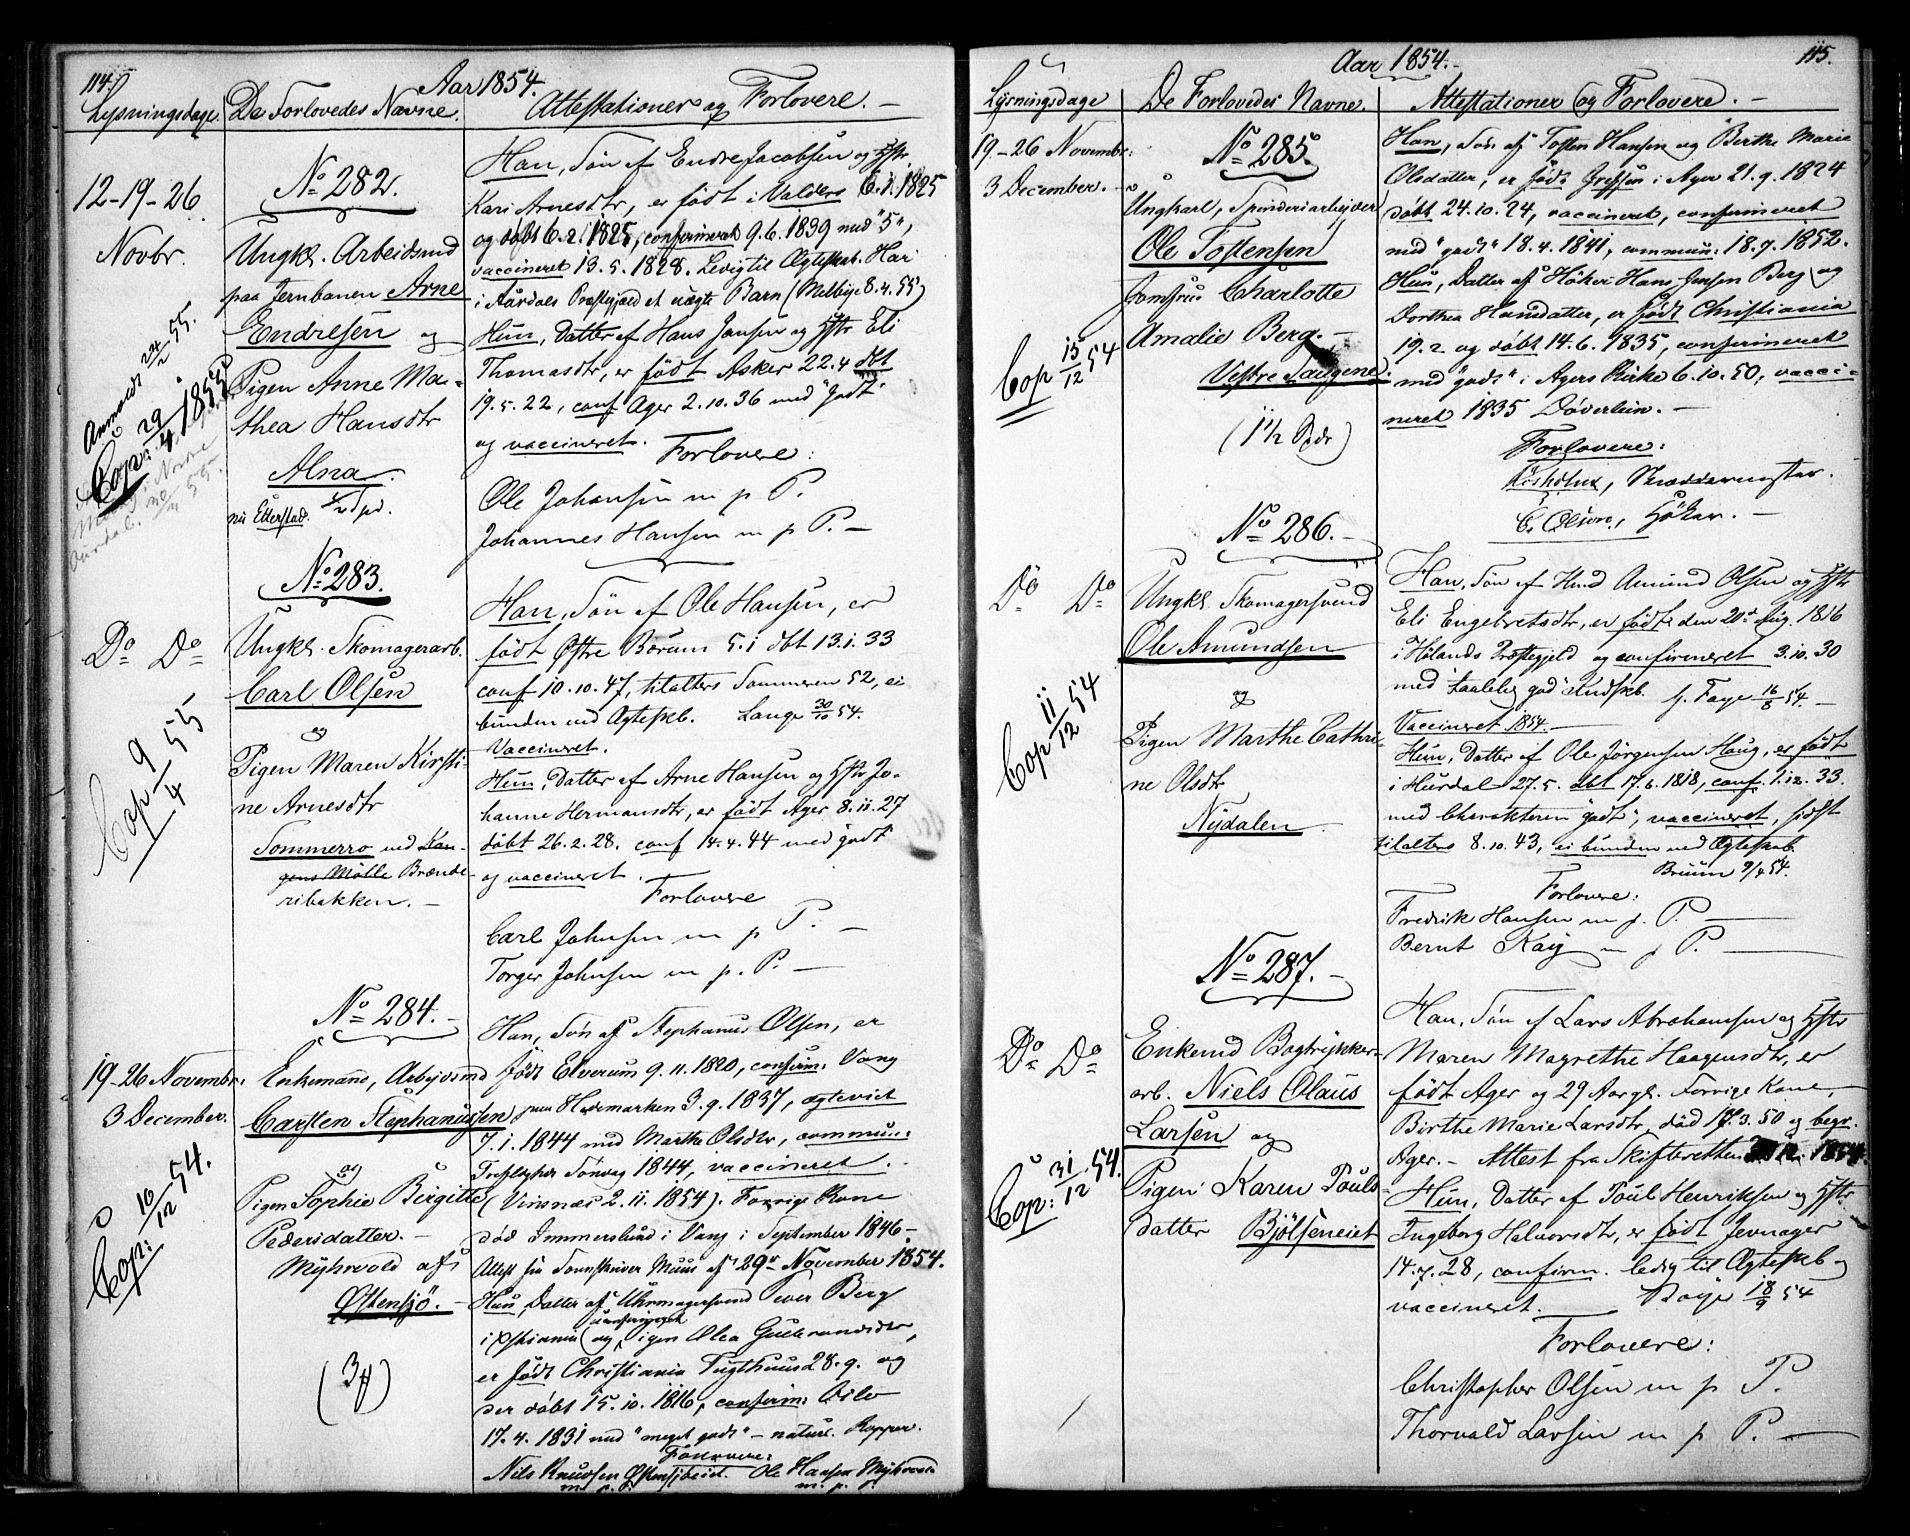 114.
Aar 1854.
Lysningsdage. De Forlovedes Navne. Attestationer og Forlovere. –
No 282.
12-19-26
Novbr.
Ungkl. Arbeidsmd
paa Jernbanen Arne
Endresen og
Pigen Anne Ma-
thea Hansdtr
Alna.
nu Etterstad. ½ Spd.
Anmeldt 24/2 55.
Cop: 29/4 1855
Aurdal.
Han, Søn af Endre Jacobsen og Hstr
Kari Arnesdtr, er født i Valders 6.1.1825
og døbt 6.2.1825, confirmeret 9.6.1839 med "5",
vaccineret 13.5.1828. Ledig til Ægteskab. Har
i Aurdals Præstegjeld et uægte Barn (Melbye 8.4.55)
Hun, Datter af Hans Jensen og Hstr Eli
Thomasdtr, er født Asker 22.4 dbt
19.5.22, conf Ager 2.10.36 med "godt"
og vaccineret.
Forlovere:
Ole Johansen m p P.
Johannes Hansen m p P. –
No 283.
Do Do
Ungkl. Skomagerarb.
Carl Olsen
og
Pigen Maren Kirsti-
ne Arnesdtr
Sommerro ved Kan-
gens Mølle Brænde-
ribakken. –
Cop 9/4 55
Han, Søn af Ole Hansen, er
født Østre Bærum 5.1 dbt 13.1.33
conf 10.10.47, tilalters Sommeren 52, ei
bunden ved Ægteskb. Lange 30/10 54.
Vaccineret.
Hun, Datter af Arne Hansen og Hstr Jo-
hanne Hermansdtr, er født Ager 8.11.27
døbt 26.2.28. conf 14.4.44 med "godt"
og vaccineret.
Forlovere
Carl Johnsen m p P. –
Torger Johnsen m. p. P. –
No 284. –
19-26 Novembr:
3 December.
Enkemand, Arbeidsmd
Carsten Stephanussen
og
Pigen Sophie Birgitte
Pedersdatter. –
Myhrvold af
Østensjø. –
(3 )
Cop: 16/12 54.
Han, Søn af Stephanus Olsen, er
født Elverum 9.11.1820, confirm: Vang
paa Hedemarken 3.9.1837, ægteviet
7.1.1844 med Marthe Olsdtr, commun:
Søndag 1844, vaccineret. –
(Vinsnæs 2.11.1854). Forrige Kone
død Immerslund i Vang i September 1846 –
Attest fra Sorenskriver Muus af 29de November 1854.
Hun, Datter af Uhrmagersvend Peder Berg
i Xstiania og Pigen Olea Gulbrandsdtr,
er født Christiania Tugthuus 28.9. og
der døbt 15.10.1816, confirm: Oslo
17.4.1831 med "meget godt" – naturl. Kopper.
Forlovere:
Nils Knudsen Østensjøeiet. Ole Hansen Myhrvold
m. p. P. m. p. P.
115.
Aar 1854. –
Lysningsdage De Forlovedes Navne. Attestationer og Forlovere. –
19-26 Novembr:
3 December. –
No 285.
Ungkarl, Spinderiarbejder
Ole Tostensen
og
Jomfrue Charlotte
Amalie Berg. –
Vestre Saugene.
(1½ Spdr)
Cop 15/12 54
Han, Søn af Tosten Hansen og Berthe Marie
Olsdatter, er født Grefsen i Ager 21.9.1824
døbt 24.10.24, vaccineret, confirmeret
med "godt" 18.4.1841, commun: 18.7.1852.
Hun, Datter af Høker Hans Jensen Berg og
Dorthea Hansdatter, er født Christiania
19.2 og døbt 14.6.1835, confirmeret
med "godt" i Agers Kirke 6.10.50, vacci-
neret 1835 Døderlein. –
Forlovere:
Kisholm, Skræddermester.
C. Olson, Høker. –
No 286. –
Do Do
Ungkl. Skomagersvend
Ole Amundsen
og
Pigen Marthe Cathri-
ne Olsdtr
Nydalen
Cop 11/12 54
Han, Søn af Husmd Amund Olsen og Hstr
Eli Engebretsdtr, er født den 20de Aug. 1816
i Hølands Præstegjeld og confirmeret 3.10.30
med taalelig god Kundskb. Faye 16/8 54. –
Vaccineret 1854.
Hun, Datter af Ole Jørgensen Haug, er født
i Hurdal 27.5. dbt 17.6.1818, conf. 1.12.33.
med Charakteren "godt", vaccineret, sidst
tilalters 8.10.43, ei bunden ved Ægteskab.
Bruun 9/4 54.
Forlovere:
Fredrik Hansen m p. P.
Bernt Kaij m p P.
No 287. –
Do Do
Enkemd Bogtrykker-
arb. Niels Olaus
Larsen og
Pigen Karen Pouls-
datter Bjølseneiet
Cop: 31/12 54.
Han, Søn af Lars Abrahamsen og Hstr
Maren Magrethe Haagensdtr, er
født Ager og 29 Aar gl. Forrige Kone,
Birthe Marie Larsdtr, død 17.3.50 og begr.
Ager. – Attest fra Skifteretten 12. 1854.
Hun, Datter af Poul Henriksen og Hstr
Ingeborg Halvorsdtr, er født Jevnager
14.7.28, confirm. ledig til Ægteskb og
vaccineret. Boije 18/9 54
Forlovere:
Christopher Olsen m p P.
Thorvald Larsen m p P. –